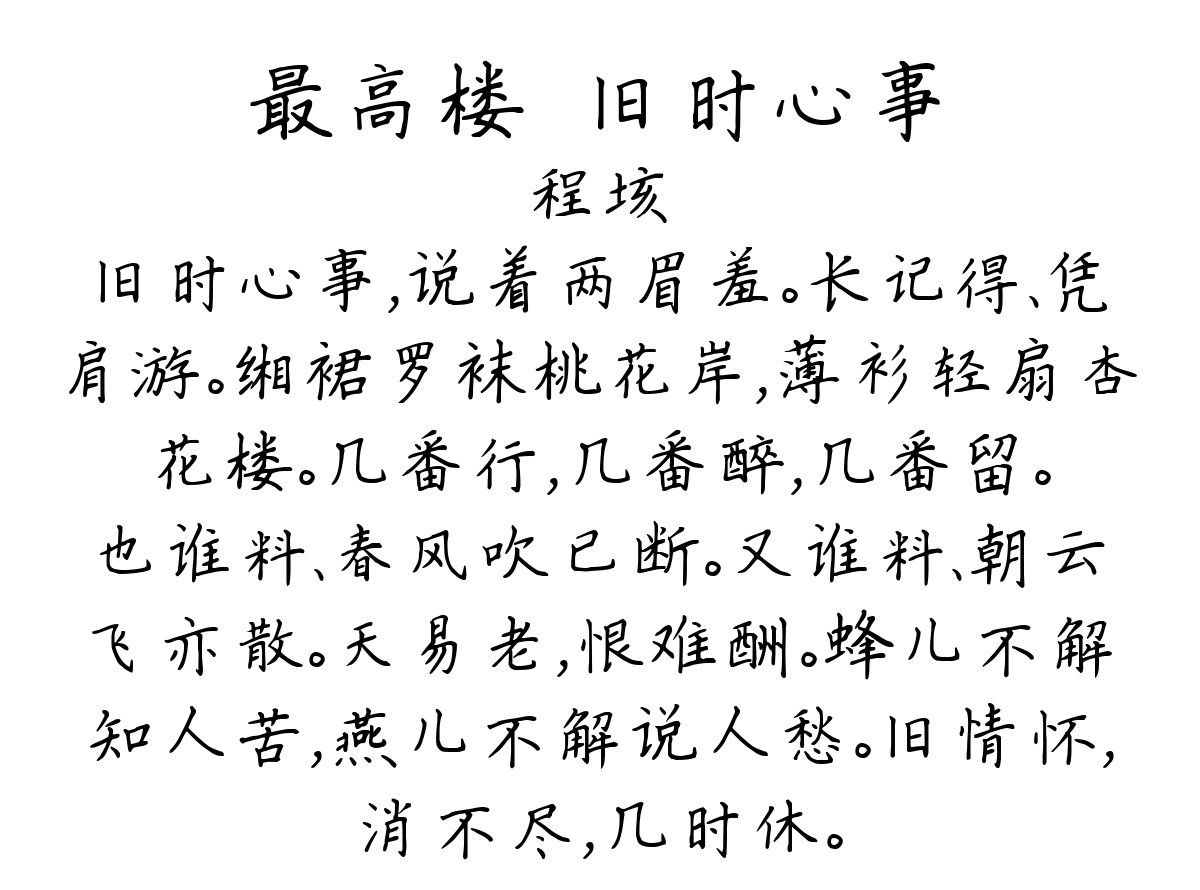 最高楼 旧时心事
程垓
旧时心事,说着两眉羞。长记得、凭
肩游。缃裙罗袜桃花岸,薄衫轻扇杏
花楼。几番行,几番醉,几番留。
也谁料、春风吹已断。又谁料、朝云
飞亦散。天易老,恨难酬。蜂儿不解
知人苦,燕儿不解说人愁。旧情怀,
消不尽,几时休。